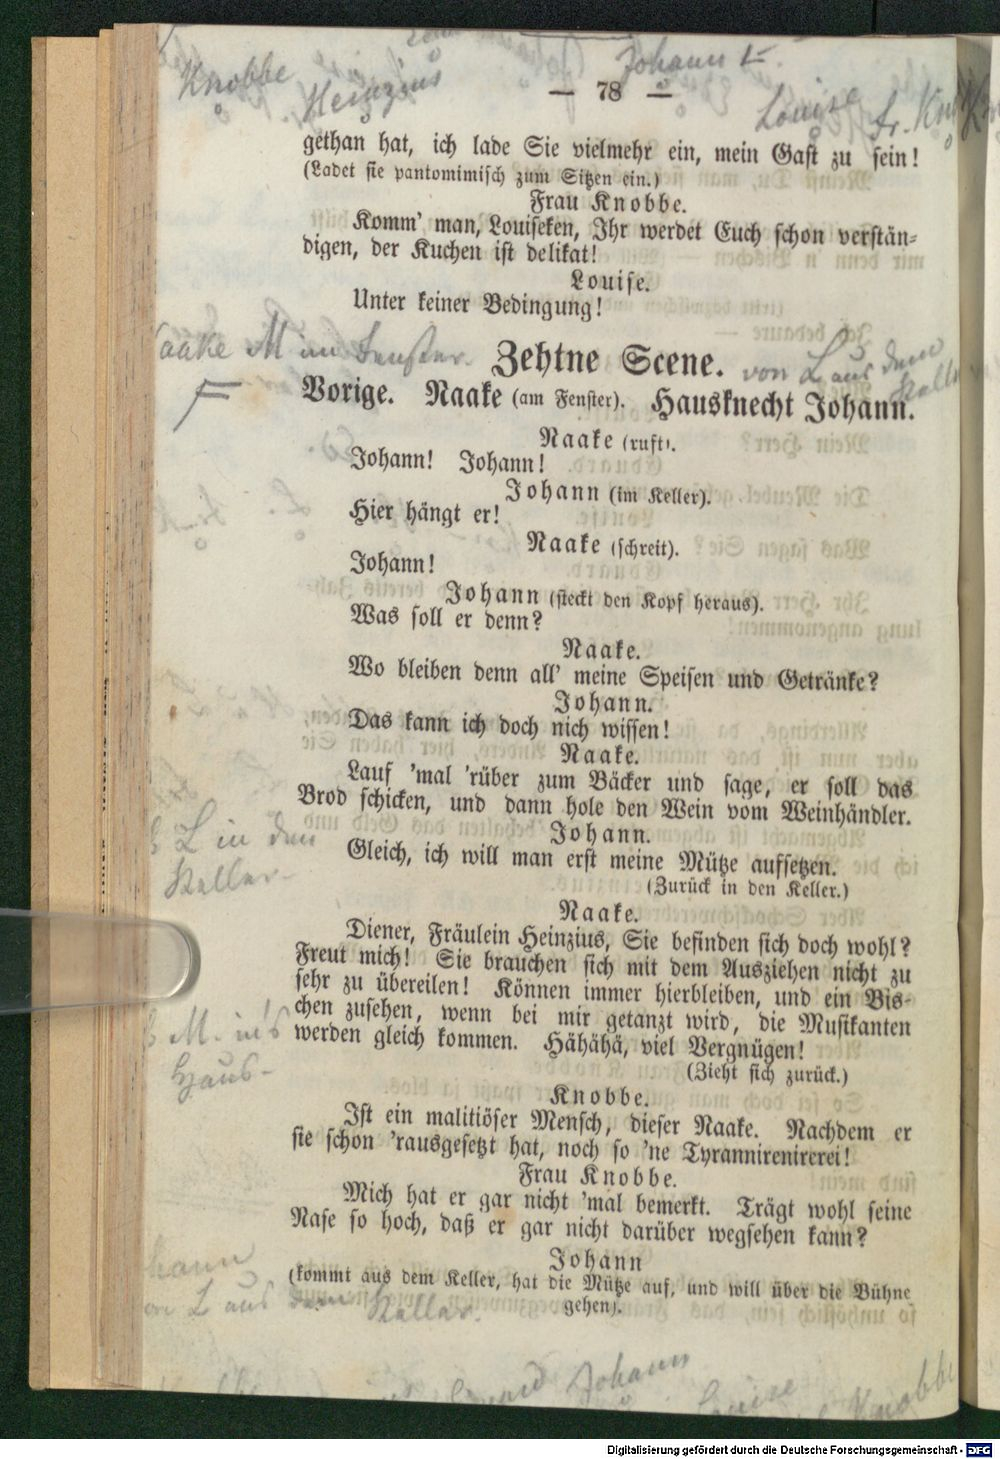 Knobbe
Heinzius
Johann L.
Louise
Fr. Kn
— 78 —
gethan hat, ich lade Sie vielmehr ein, mein Gast zu sein!
(Ladet sie pantomimisch zum Sitzen ein.)
Frau Knobbe.
Komm' man, Louiseken, Ihr werdet Euch schon verstän-
digen, der Kuchen ist delikat!
Louise.
Unter keiner Bedingung!
aake M im Fenster.
Zehtne Scene.
von L aus dem
Keller
Vorige. Naake (am Fenster). Hausknecht Johann.
Naake (ruft).
Johann! Johann!
Johann (im Keller).
Hier hängt er!
Naake (schreit).
Johann!
Johann (steckt den Kopf heraus).
Was soll er denn?
Naake.
Wo bleiben denn all' meine Speisen und Getränke?
Johann.
Das kann ich doch nich wissen!
Naake.
Lauf 'mal 'rüber zum Bäcker und sage, er soll das
Brod schicken, und dann hole den Wein vom Weinhändler.
Johann.
L in den
Keller
Gleich, ich will man erst meine Mütze aufsetzen.
(Zurück in den Keller.)
Naake.
Diener, Fräulein Heinzius, Sie befinden sich doch wohl?
Freut mich! Sie brauchen sich mit dem Ausziehen nicht zu
sehr zu übereilen! Können immer hierbleiben, und ein Bis-
chen zusehen, wenn bei mir getanzt wird, die Musikanten
werden gleich kommen. Hähähä, viel Vergnügen!
M. in's
Haus
(Zieht sich zurück.)
Knobbe.
Ist ein malitiöser Mensch, dieser Naake. Nachdem er
sie schon 'rausgesetzt hat, noch so 'ne Tyrannirenirerei!
Frau Knobbe.
Mich hat er gar nicht 'mal bemerkt. Trägt wohl seine
Nase so hoch, daß er gar nicht darüber wegsehen kann?
Johann
(kommt aus dem Keller, hat die Mütze auf, und will über die Bühne
gehen).
hann
on L aus dem Keller.
Johann
Louise
Knobbe
Digitalisierung gefördert durch die Deutsche Forschungsgemeinschaft - DFG